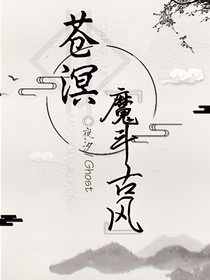 苍溟
魔斗古风
◎夜汐 / Ghost